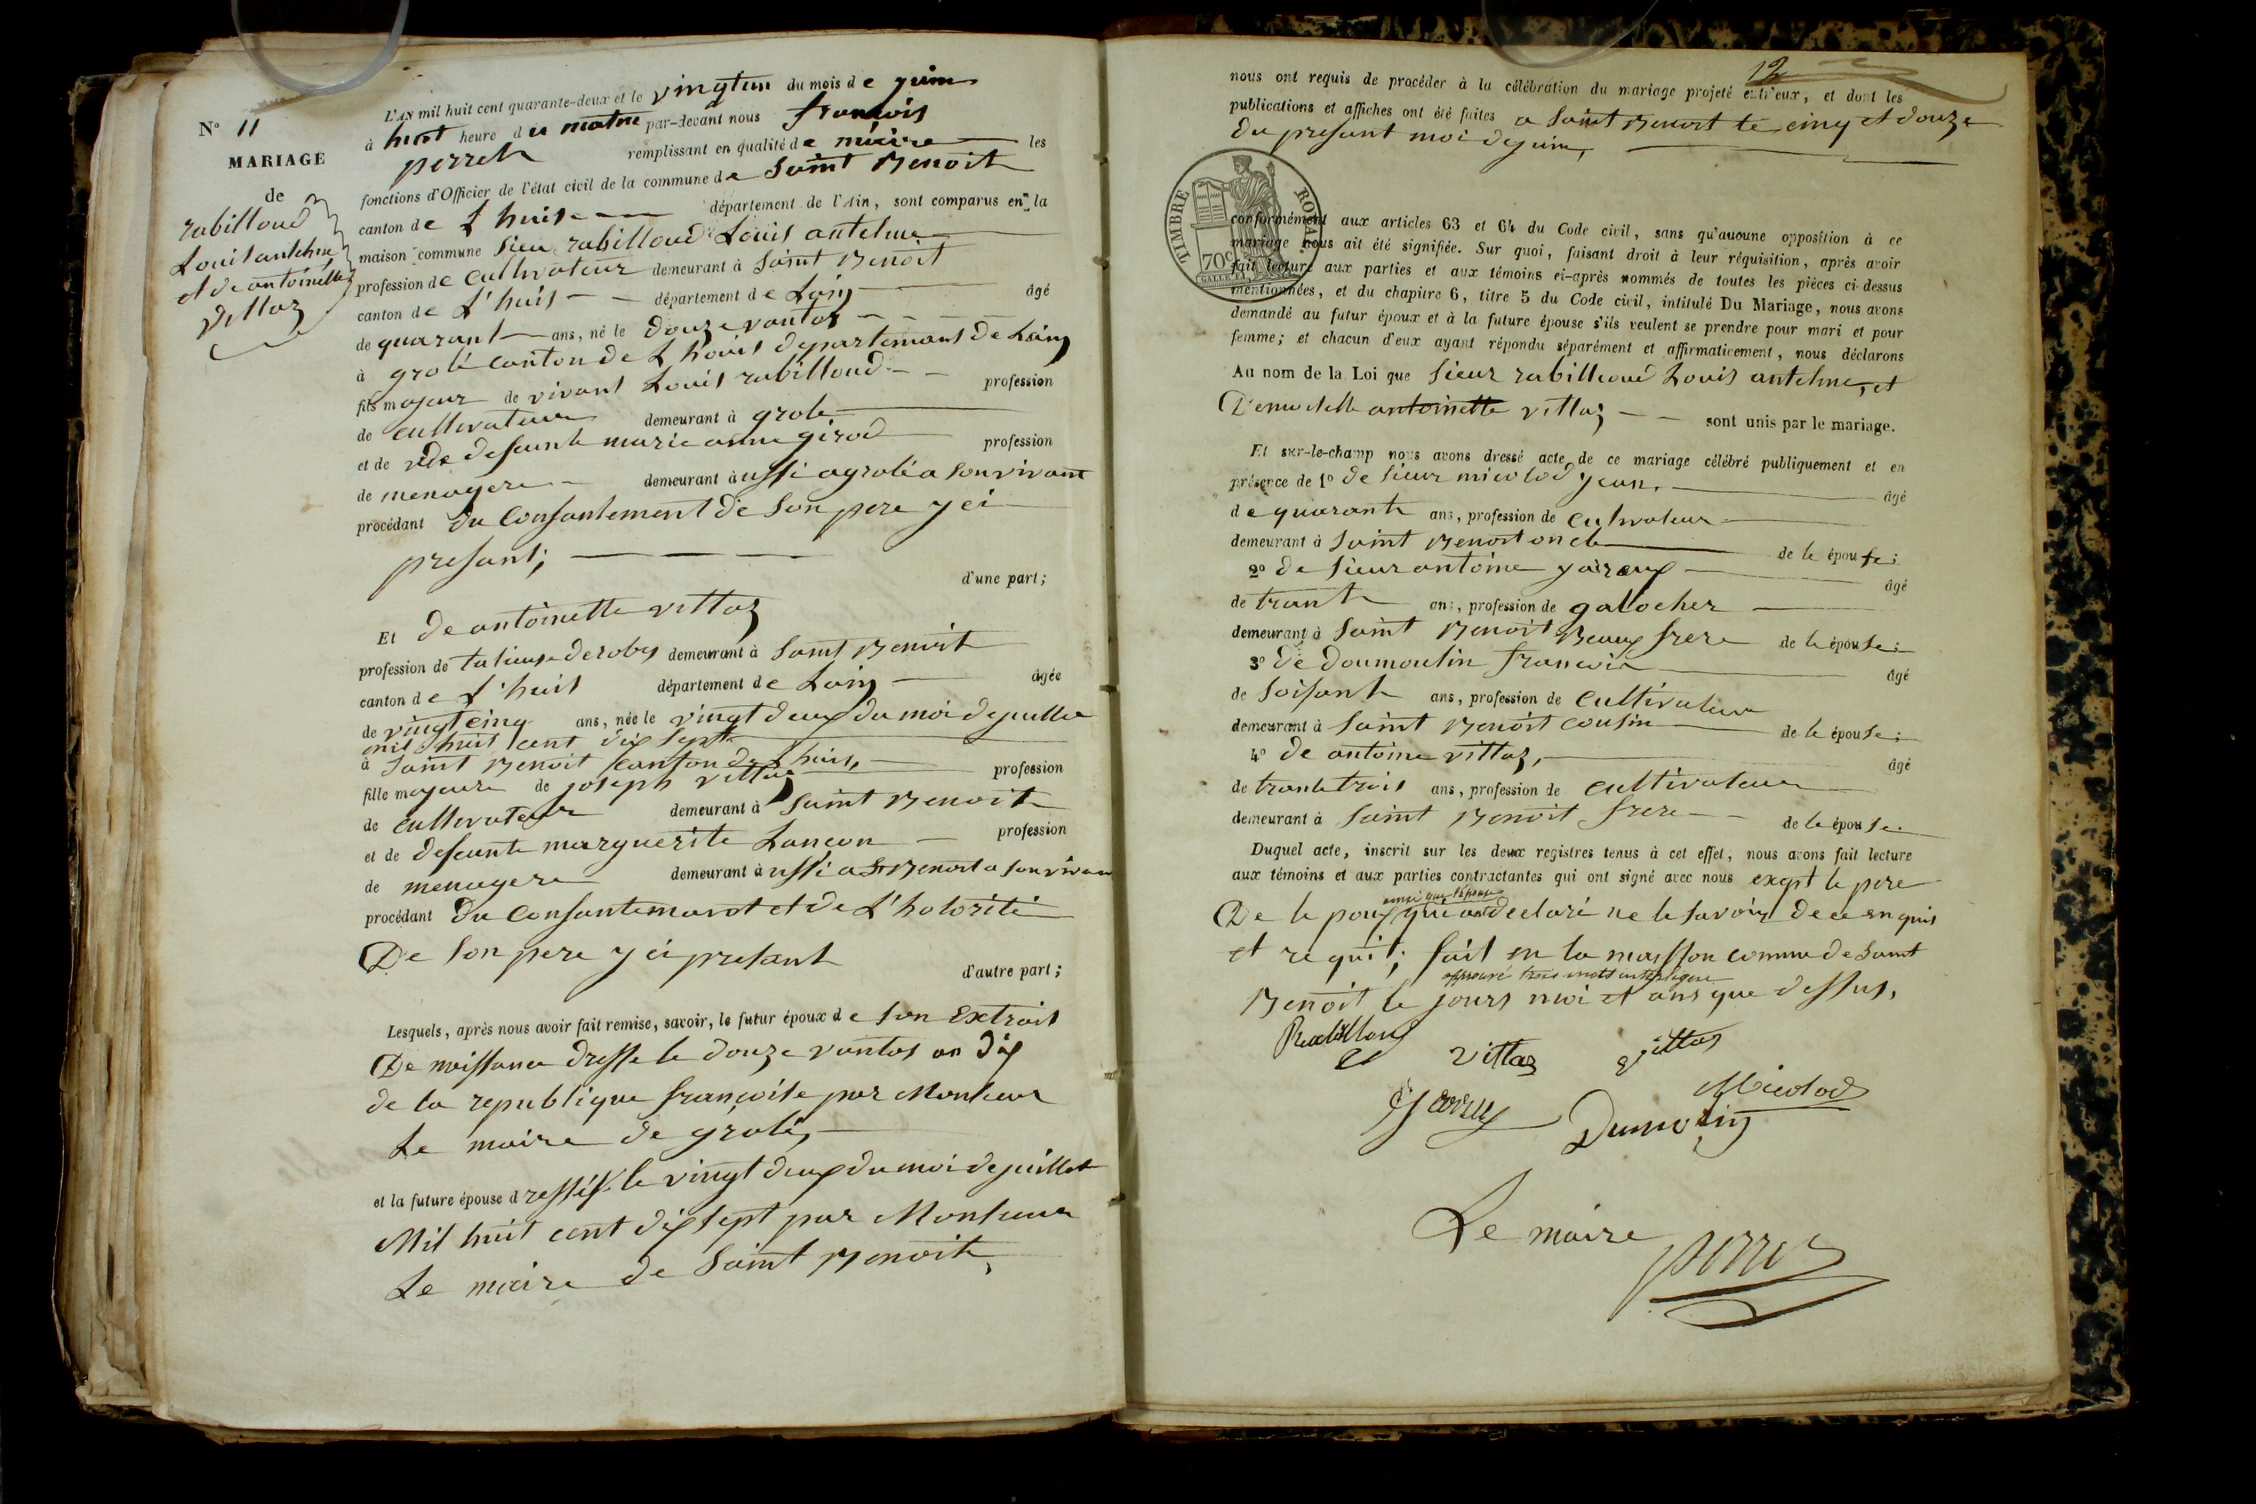 N° 11
MARIAGE
de
rabilloud
Louis antelme
et de antoinette
vittoz
L'AN mil huit cent quarante-deux et le vingtun du mois de juin
à huit heure du matin par-devant nous francois
perret remplissant en qualité de maire les
fonctions d'Officier de l'état civil de la commune de Saint Benoit
canton de L'huis département de l'Ain, sont comparus en la
maison commune sieur rabilloud Louis antelme
profession de cultivateur demeurant à Saint Benoit
canton de L'huis département de Lain âgé
de quarant ans, né le douze vantos
à grolé canton de Lhouis departement de Lain
fils majeur de vivant Louis rabilloud profession
de cultivateur demeurant à grolé
et de defeunte marie anne girod profession
de menagere demeurant àussi a grolé a son vivant
procédant du consantement de son pere y ci
presant;
d'une part;
Et de antoinette vittoz
profession de talieuse de robes demeurant à Saint Benoit
canton de L'huis département de Lain âgée
de vingt cinq ans, née le vingt deux du moi de juillet
mil huit cent dix sept
à Saint Benoit canton de Lhuis,
fille majeure de joseph vittoz profession
de cultivateur demeurant à Saint Benoit
et de defeunte marguerite Lancon profession
de menagere demeurant àussi a St Benoit a son vivan
procédant du consantemant et de L'hotorité
De son pere y ci presant
d'autre part;
Lesquels, après nous avoir fait remise, savoir, le futur époux de son Extrait
De naissance dresse le douze vantos an dix
de la republique françoise par Monsieur
Le maire de grolé,
et la future épouse dressés le vingt deux du moi de juillet
Mil huit cent dix sept par Monsieur
Le maire de Saint Benoit,
12
nous ont requis de procéder à la célébration du mariage projeté entr'eux, et dont les
publications et affiches ont été faites a Saint Benoit le cinq et douze
du presant moi de juin,
TIMBRE ROYAL.
70c
conformément aux articles 63 et 64 du Code civil, sans qu'aucune opposition à ce
mariage nous ait été signifiée. Sur quoi, faisant droit à leur réquisition, après avoir
fait lecture aux parties et aux témoins ci-après nommés de toutes les pièces ci-dessus
mentionnées, et du chapitre 6, titre 5 du Code civil, intitulé Du Mariage, nous avons
demandé au futur époux et à la future épouse s'ils veulent se prendre pour mari et pour
femme; et chacun d'eux ayant répondu séparément et affirmativement, nous déclarons
Au nom de la Loi que sieur rabilloud Louis antelme, et
Demoiselle antoinette vittoz sont unis par le mariage.
Et sur-le-champ nous avons dressé acte de ce mariage célébré publiquement et en
présence de 1° de sieur micolod jean, âgé
de quarante ans, profession de cultivateur
demeurant à Saint Benoit oncle de le épouse;
2° de sieur antoine âgé
de trant ans, profession de galocher
demeurant à Saint Benoit Beaux frere de le épouse;
3° de doumoulin francois âgé
de soisant ans, profession de cultivateur
demeurant à Saint Benoit cousin de le épouse;
4° de antoine vittoz, âgé
de trante trois ans, profession de cultivateur
demeurant à Saint Benoit frere de le épouse.
Duquel acte, inscrit sur les deux registres tenus à cet effet, nous avons fait lecture
aux témoins et aux parties contractantes qui ont signé avec nous exept le pere
ainsi que lépouse
De le poux que on declaré ne le savoir de ce enquis
et requit; fait en la maisson commune de Saint
approuvé trois mots interligne
Benoit le jours moi et ans que dessus,
Rabilloud
vittoz vittoz
Micolod
Dumolin
Le maire
perret